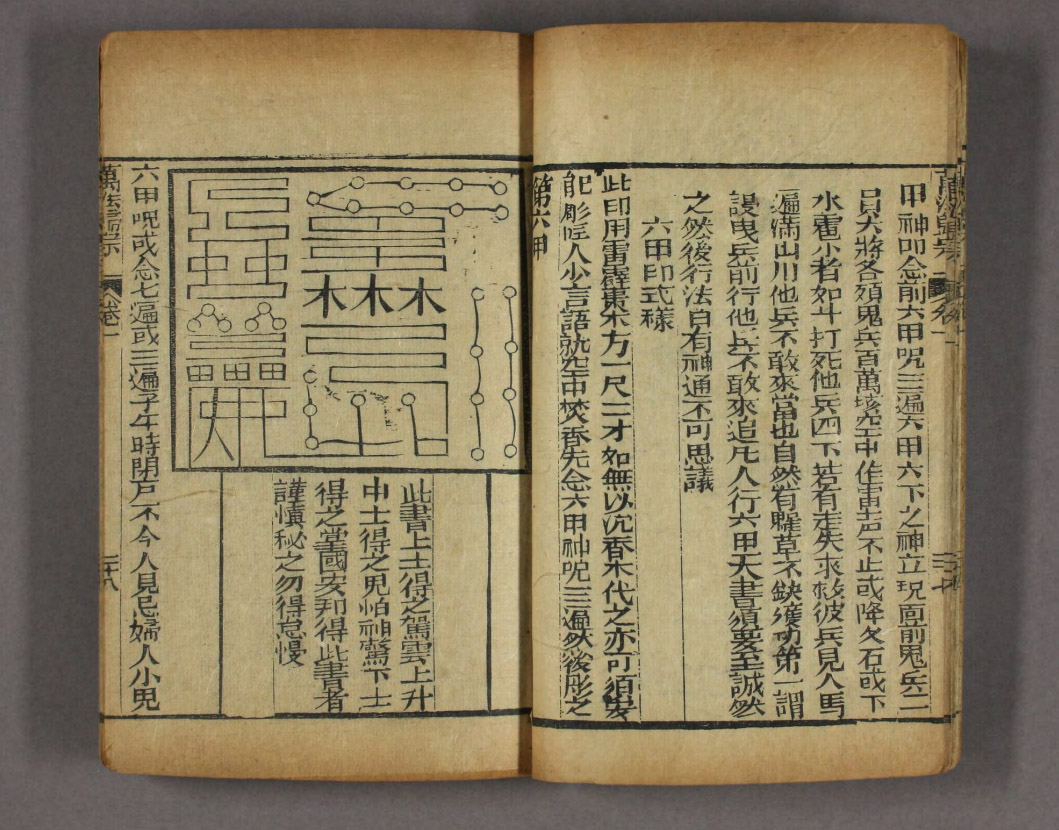 甲神叩念前六甲咒三遍六甲六下之神立現面前鬼兵二
員天將各領鬼兵百萬垓空中作雷声不止或降火石或下
水雹小者如斗打死他兵四下若有走失求救彼兵見人馬
遍滿山川他兵不敢來當也自然有糧草不缺獲功第一謂
謾曳兵前行他兵不敢來追凡人行六甲天書須要至誠然
之然後行法自有神通不可思議
六甲印式樣
此印用雷霹棗木方一尺二寸如無以沉香木代之亦可須
彫匠人少言語就空中焚香先念六甲神咒三遍然後彫之
第六甲
此書上士得之駕雲上升
中士得之鬼怕神驚下士
得之堂國安邦得此書者
謹慎秘之勿得怠慢
六甲呪或念七遍或三遍子午時閉戶不令人見忌婦人小兒
萬法歸宗
卷一
二十八